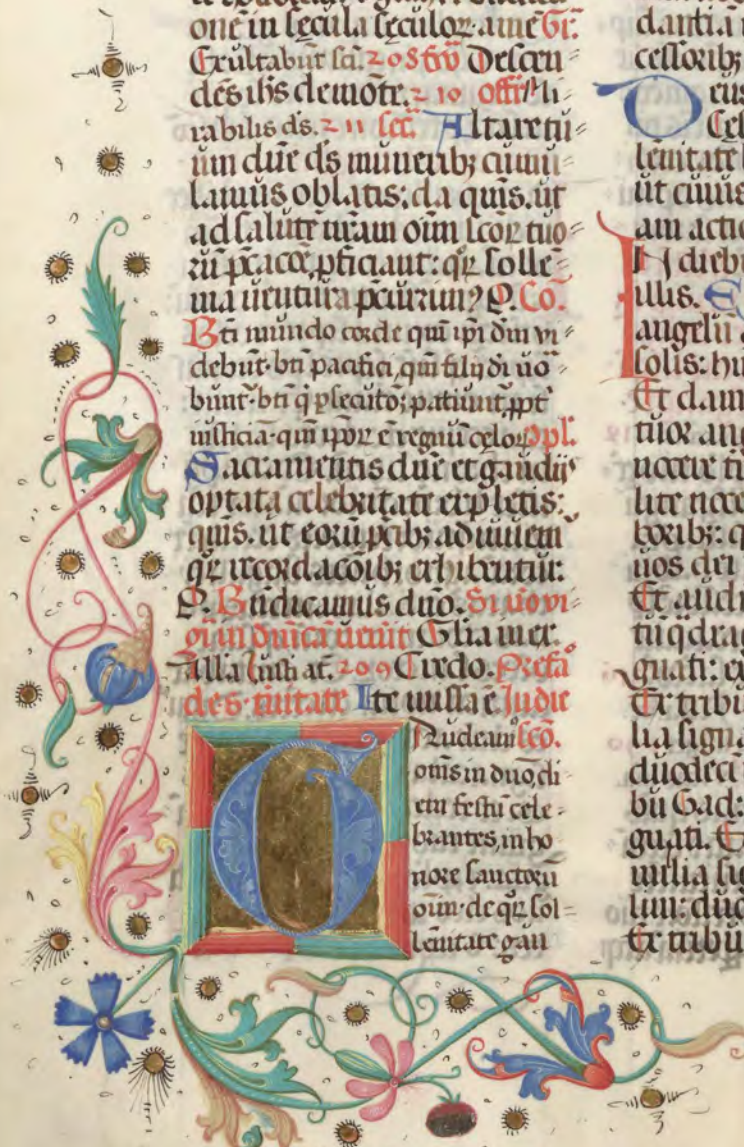 one in secula seculoꝝ. amē Gr̄.
Exultabūt sc̄i. 208 Ew̄ Descen
des ih̄s de mōte. 210 offr̄ Mi
rabilis ds. 211 sec̄. Altare tu
um dn̄e ds muneribꝫ cumu
lamus oblatis: da qn̄s. ut
ad salutē nr̄am oīm sc̄oꝝ tuo
rū p̄cac̄o̅e ꝓficiant: qꝝ solle
nia uentura p̄currimꝰ P. Cō.
Bt̄i mundo corde qm̄ ip̄i dm̄ vi
debūt. bt̄i pacifici, qm̄ filij di uo
bunt. bt̄i q̄ ꝑsecutōꝫ patiunt̄, ꝓpt̄
iusticiā. qm̄ ip̄oꝝ ē regnū celoꝝ. 9pl.
Sacramentis dn̄e et gaudijs
optata celebritate expletis:
qn̄s. ut eorū p̄cibꝫ adiuuem̄
qꝝ recordac̄oībꝫ exhibentur.
P. Bn̄dicamus dn̄o. Si uovi
gī in dn̄ica uenit Gl̄ia in ex.
All̄a Iusti at̄. 209 Credo. Prefa
de s. tn̄itate Ite missa ē. In die
Gaudeamꝰ sc̄o.
om̄s in dn̄o, di
em festū cele
brantes, in ho
nore sanctorū
oīm. de qꝝ sol
lenitate gau
dantia
cessoribꝫ
Deus
Cel
lenitate
ut cuius
am actio
In diebu
illis.
angelū a
solis: h
Et clam
tuor ang
nocere t
lite noce
boribꝫ: q
uos dei
Et audi
tū qdra
gnati: ex
Ex tribu
lia sign
duodeci
bu Gad:
gnati. E
milia sig
lim: duo
Ex tribu